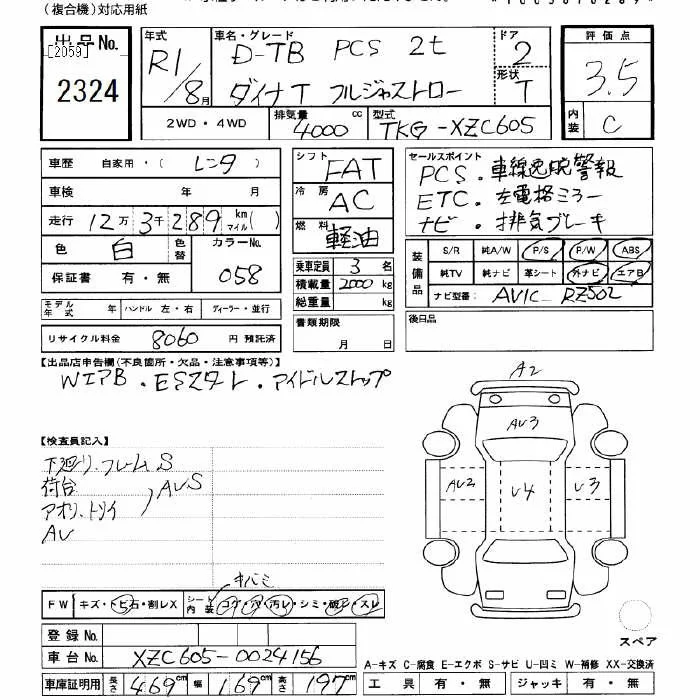 (複合機)対応用紙
出品No.
[2059]
2324
年式
R1/8月
車名・グレード
D-TB PCS 2t
ダイナT フルジャストロー
ドア
2
形状
T
2WD・4WD
排気量
4000 cc
型式
TKG-XZC605
評価点
3.5
内装
C
車歴 自家用・( レンタ )
車検 年 月
走行 12万3千289 km マイル( )
色 白 色替 カラーNo. 058
保証書 有・無
モデル年式 年 ハンドル 左・右 ディーラー・並行
リサイクル料金 8060 円 預託済
シフト FAT
冷房 AC
燃料 軽油
乗車定員 3 名
積載量 2000 kg
総重量 kg
書類期限
月 日
セールスポイント
PCS・車線逸脱警報
ETC・左電格ミラー
ナビ・排気ブレーキ
装備品
S/R 純A/W P/S P/W ABS
純TV 純ナビ 革シート 外ナビ エアB
ナビ型番 AVIC-RZ502
後日品
【出品店申告欄(不良箇所・欠品・注意事項等)】
WエアB・ESスタート・アイドルストップ
【検査員記入】
下廻り、フレームS
荷台
アオリ、トリイ AUS
AU
A2
AU3
AU2
U4
U3
キバミ
FW キズ・トビ石・割レX シート内装 コゲ・穴・汚レ・シミ・破レ・スレ
スペア
登録No.
車台No. XZC605-0024156
車庫証明用 長さ 469cm 幅 169cm 高さ 197cm
A-キズ C-腐食 E-エクボ S-サビ U-凹ミ W-補修 XX-交換済
工具 有・無 ジャッキ 有・無